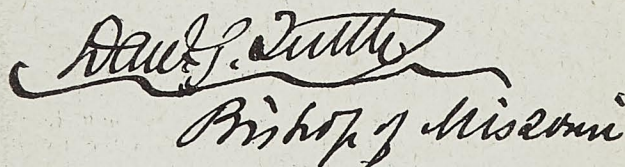 Danl. S. Tuttle
Bishop of Missouri